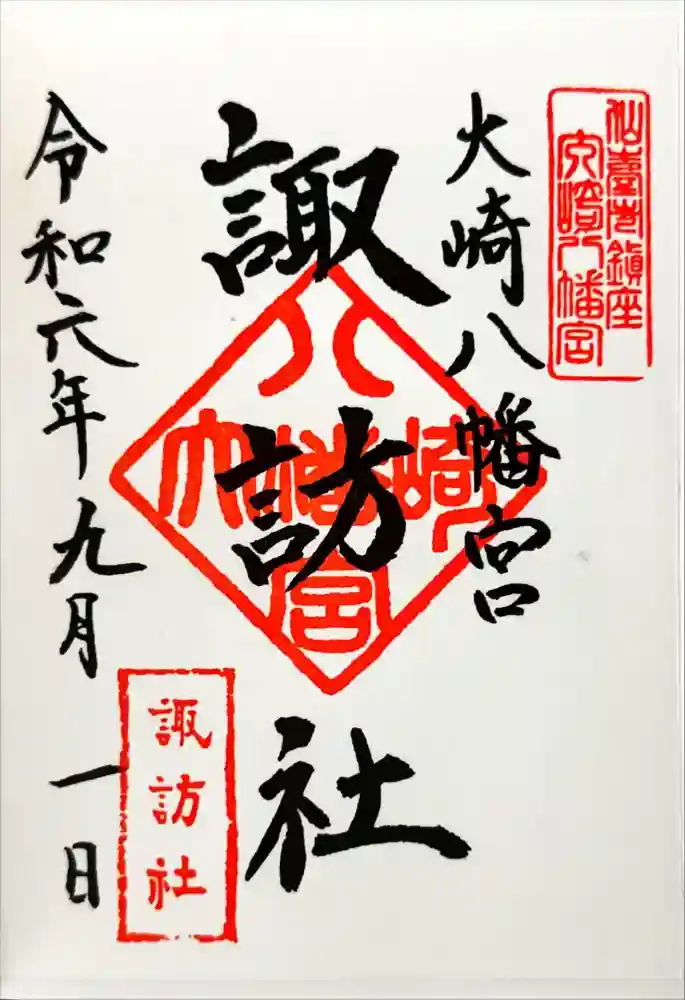 仙臺市鎮座
大崎八幡宮
大崎八幡宮
諏訪社
大崎八幡宮
諏訪社
令和六年九月一日